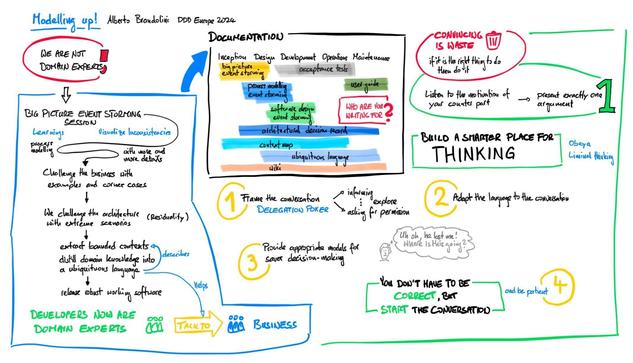 Modelling up! Alberto Brandolini DDD Europe 2024
WE ARE NOT
DOMAIN EXPERTS!
BIG PICTURE EVENT STORMING
SESSION
Learning
Visualize inconsistencies
process
modelling
with more and
more details
Challenge the business with
examples and corner cases
We challenge the architecture (Residuality)
with extreme scenarios
extract bounded contexts
distill domain knowledge into
a ubiquitous language
describes
release robust working software
helps
DEVELOPERS NOW ARE
DOMAIN EXPERTS
TALK TO
BUSINESS
DOCUMENTATION
Inception Design Development Operations Maintenance
big picture
event storming
acceptance tests
process modelling
event storming
user guide
software design
event storming
WHO ARE YOU
WRITING FOR?
architectural decision record
context map
ubiquitous language
wiki
1
Frame the conversation
DELEGATION POKER
informing
explore
asking for permission
2
Adapt the language to the conversation
3
Provide appropriate models for
saver decision-making
CONVINCING
IS WASTE
if it is the right thing to do
then do it
Listen to the motivation of
your counter part
present exactly one
argument
1
BUILD A SMARTER PLACE FOR
THINKING
Obeya
Liminal thinking
YOU DON'T HAVE TO BE
CORRECT, BUT
START THE CONVERSATION
and be patient
4